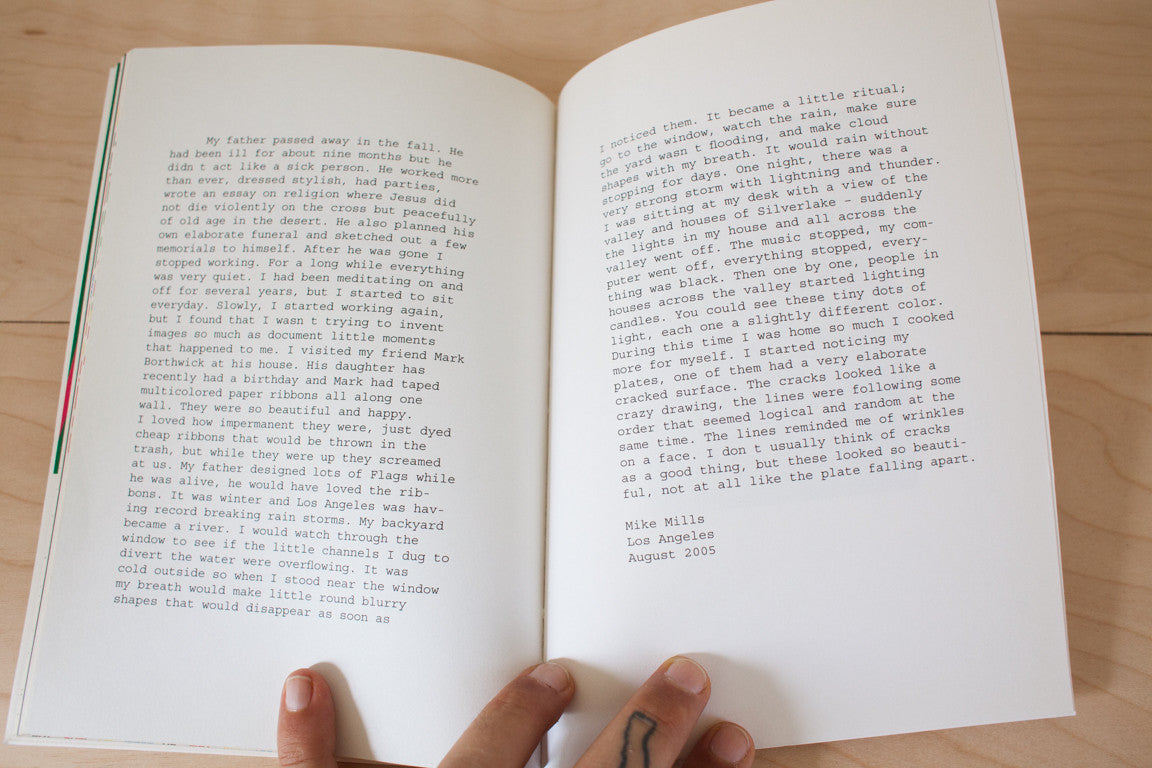 My father passed away in the fall. He
had been ill for about nine months but he
didn t act like a sick person. He worked more
than ever, dressed stylish, had parties,
wrote an essay on religion where Jesus did
not die violently on the cross but peacefully
of old age in the desert. He also planned his
own elaborate funeral and sketched out a few
memorials to himself. After he was gone I
stopped working. For a long while everything
was very quiet. I had been meditating on and
off for several years, but I started to sit
everyday. Slowly, I started working again,
but I found that I wasn t trying to invent
images so much as document little moments
that happened to me. I visited my friend Mark
Borthwick at his house. His daughter has
recently had a birthday and Mark had taped
multicolored paper ribbons all along one
wall. They were so beautiful and happy.
I loved how impermanent they were, just dyed
cheap ribbons that would be thrown in the
trash, but while they were up they screamed
at us. My father designed lots of Flags while
he was alive, he would have loved the rib-
bons. It was winter and Los Angeles was hav-
ing record breaking rain storms. My backyard
became a river. I would watch through the
window to see if the little channels I dug to
divert the water were overflowing. It was
cold outside so when I stood near the window
my breath would make little round blurry
shapes that would disappear as soon as
I noticed them. It became a little ritual;
go to the window, watch the rain, make sure
the yard wasn t flooding, and make cloud
shapes with my breath. It would rain without
stopping for days. One night, there was a
very strong storm with lightning and thunder.
I was sitting at my desk with a view of the
valley and houses of Silverlake – suddenly
the lights in my house and all across the
valley went off. The music stopped, my com-
puter went off, everything stopped, every-
thing was black. Then one by one, people in
houses across the valley started lighting
candles. You could see these tiny dots of
light, each one a slightly different color.
During this time I was home so much I cooked
more for myself. I started noticing my
plates, one of them had a very elaborate
cracked surface. The cracks looked like a
crazy drawing, the lines were following some
order that seemed logical and random at the
same time. The lines reminded me of wrinkles
on a face. I don t usually think of cracks
as a good thing, but these looked so beauti-
ful, not at all like the plate falling apart.
Mike Mills
Los Angeles
August 2005